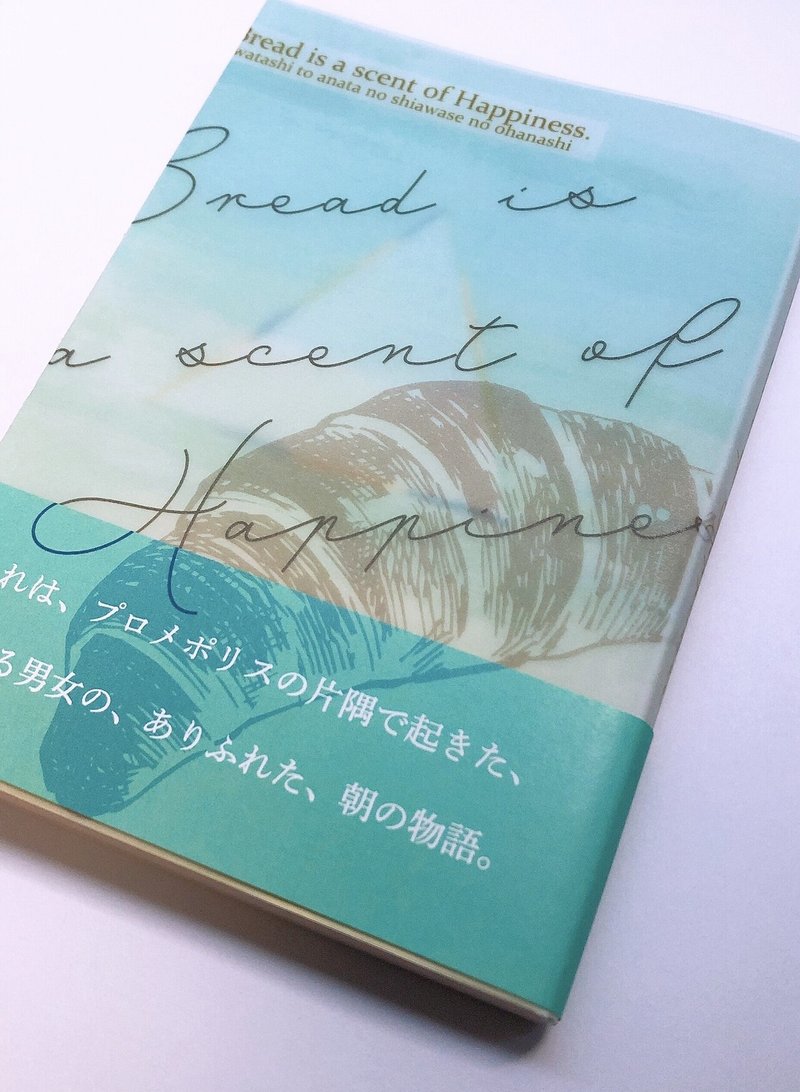 Bread is a scent of Happiness.
watashi to anata no shiawase no ohanashi
Bread is
a scent of
Happines
れは、プロメポリスの片隅で起きた、
る男女の、ありふれた、朝の物語。